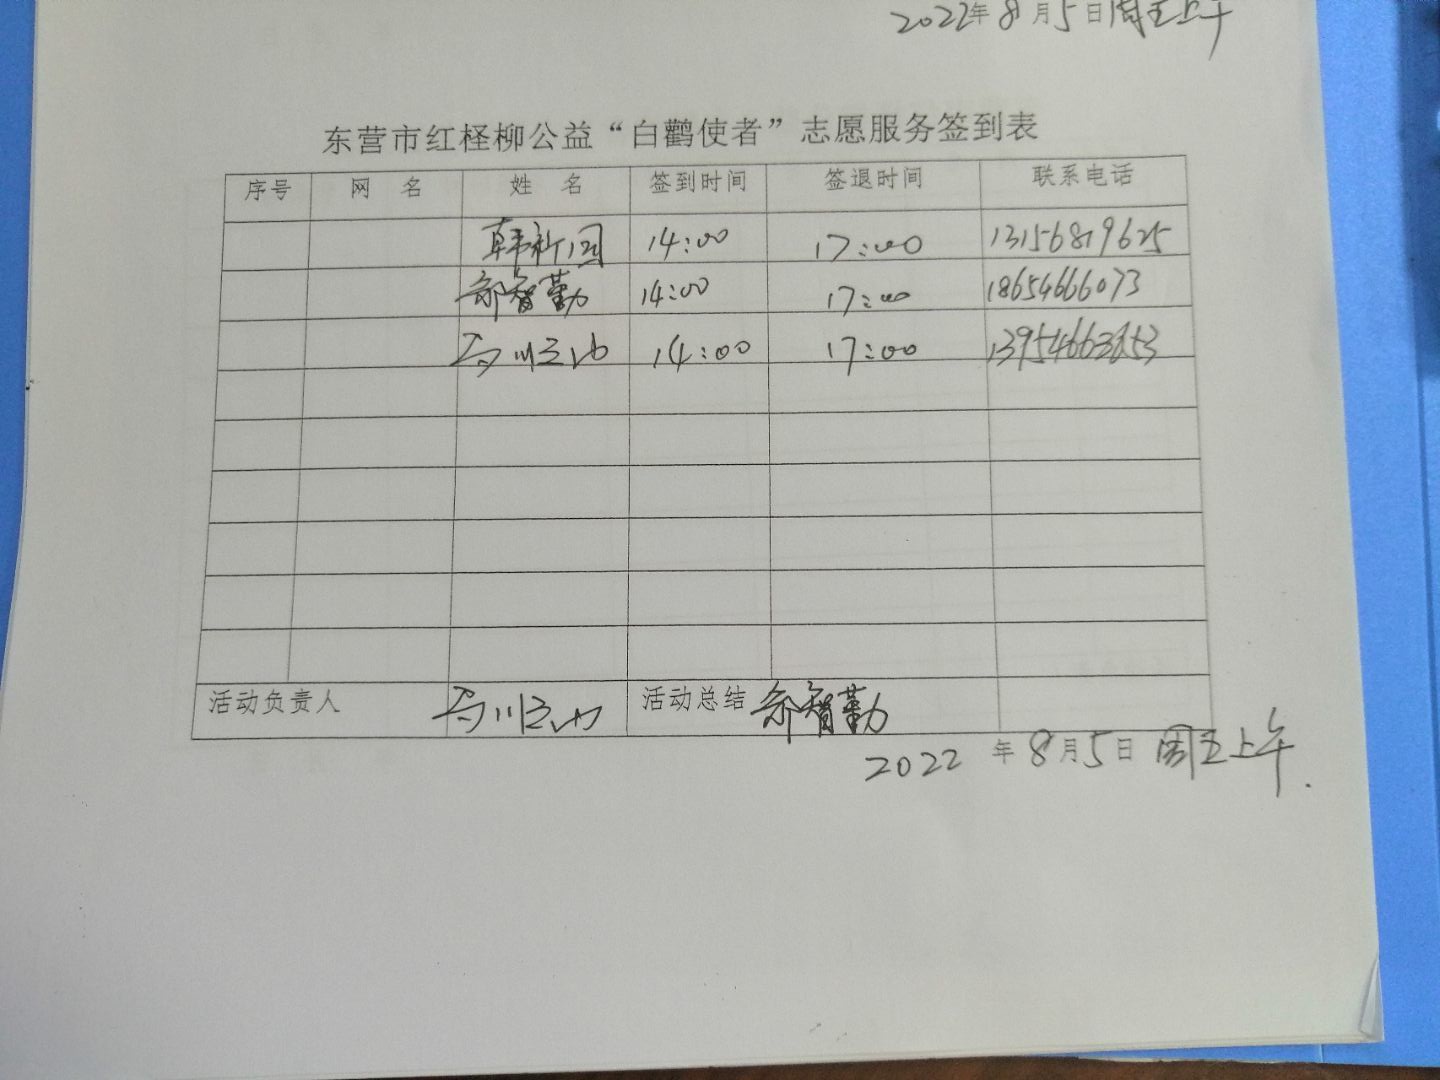 2022年8月5日周五上午
东营市红柽柳公益“白鹳使者”志愿服务签到表
序号 网 名 姓 名 签到时间 签退时间 联系电话
韩新国 14:00 17:00 13156819625
智勤 14:00 17:00 18654666073
14:00 17:00 13954663853
活动负责人 活动总结 智勤
2022 年8月5日 周五上午.